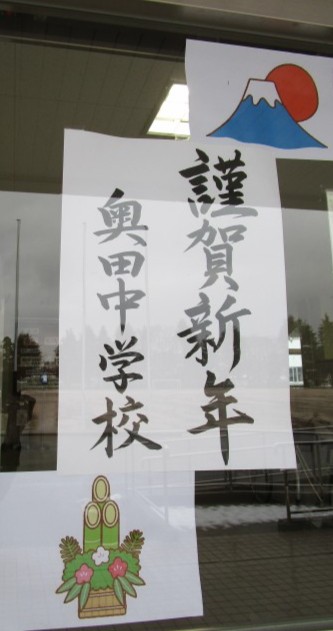 謹賀新年
奥田中学校